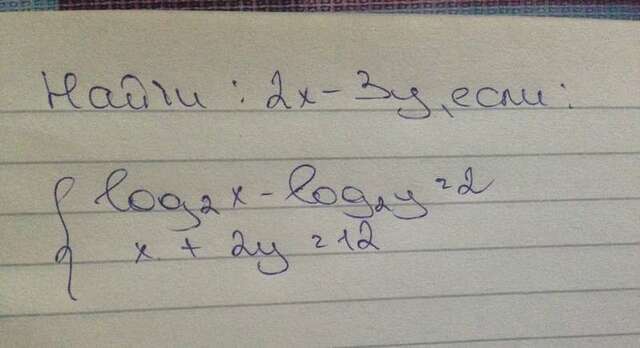 Найти: 2x - 3y, если:
log₂x - log₂y = 2
x + 2y = 12